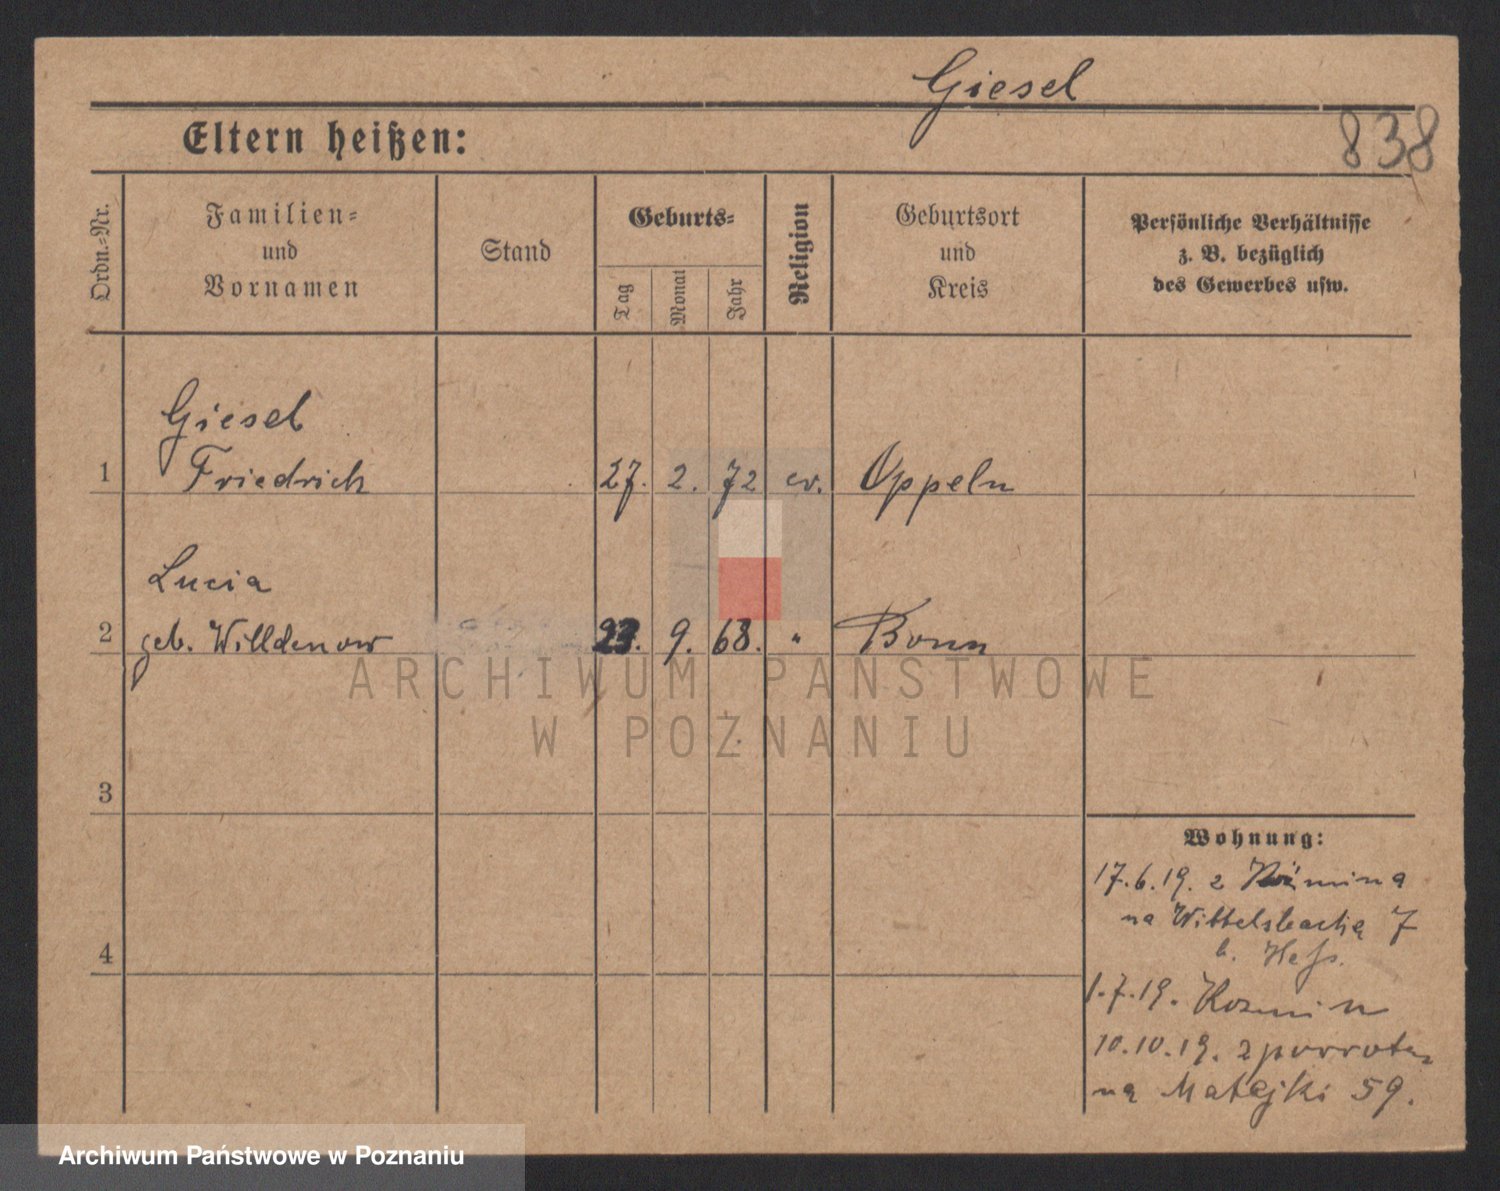 Giesel
838
Eltern heißen:
Ordn.=Nr.
Familien=
und
Vornamen
Stand
Geburts=
Tag
Monat
Jahr
Religion
Geburtsort
und
Kreis
Persönliche Verhältnisse
z. B. bezüglich
des Gewerbes usw.
Giesel
1 Friedrich 27. 2. 72 ev. Oppeln
Lucia
2 geb. Willdenow 23. 9. 68. " Bonn
ARCHIWUM PAŃSTWOWE
W POZNANIU
3
4
Wohnung:
17.6.19. z
na Wittelsbacha 7
b. Heß.
1.7.19. Kozmin
10.10.19. z powrotem
na Matejki 59.
Archiwum Państwowe w Poznaniu